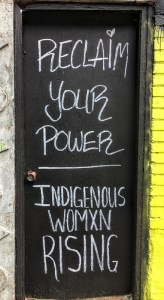 RECLAIM
YOUR
POWER
INDIGENOUS
WOMXN
RISING